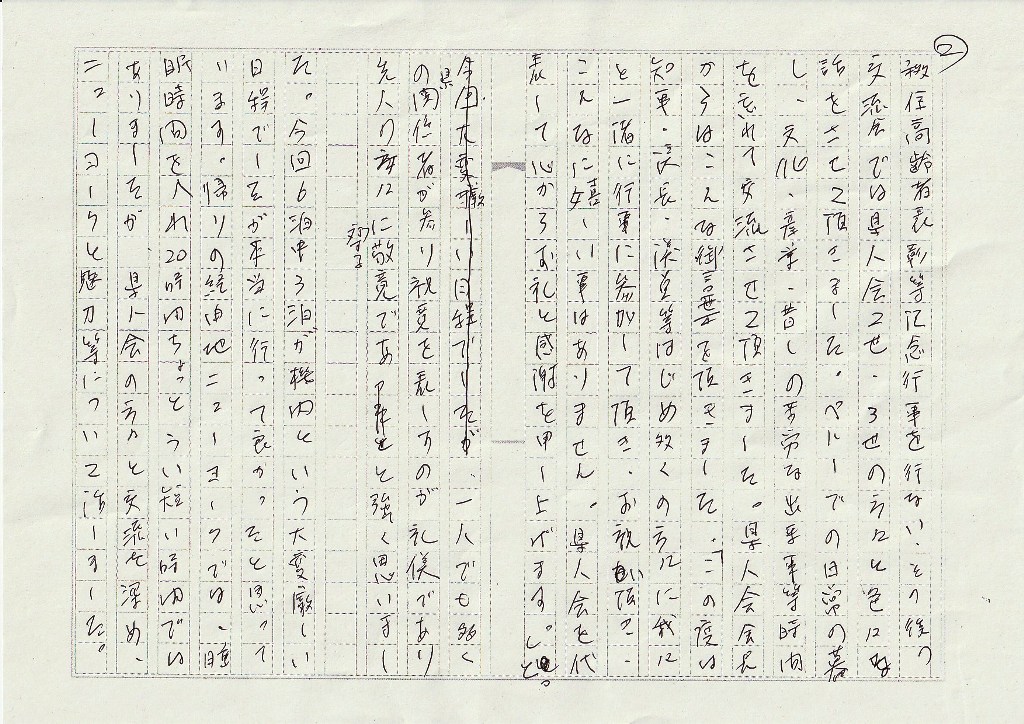 ②
移住高齢者表彰等記念行事を行ない、その後の
交流会では県人会2世、3世の方々と色々お
話をさせて頂きました。ペルーでの日常の暮
し、文化、産業、昔しの苦労な出来事等時間
を忘れて交流させて頂きました。県人会会長
からはこんな御言葉を頂きました。「この度は
知事・議長・議員等はじめ多くの方々に我々
と一諸に行事に参加して頂き、お祝い頂き、
こんなに嬉しい事はありません。県人会を代
表して心からお礼と感謝を申し上げます。」と。
今回大変厳しい日程でしたが、一人でも多く
の県関係者が参り祝意を表しすのが礼儀であり
先人の方々に敬意で あると強く思いまし
た。今回6泊中3泊が機内という大変厳しい
日程でしたが本当に行って良かったと思って
います。帰りの経由地ニューヨークでは、睡
眠時間を入れ20時間ちょっとうい短い時間では
ありましたが、県人会の方々と交流を深め、
ニューヨークと魅力等について話しました。